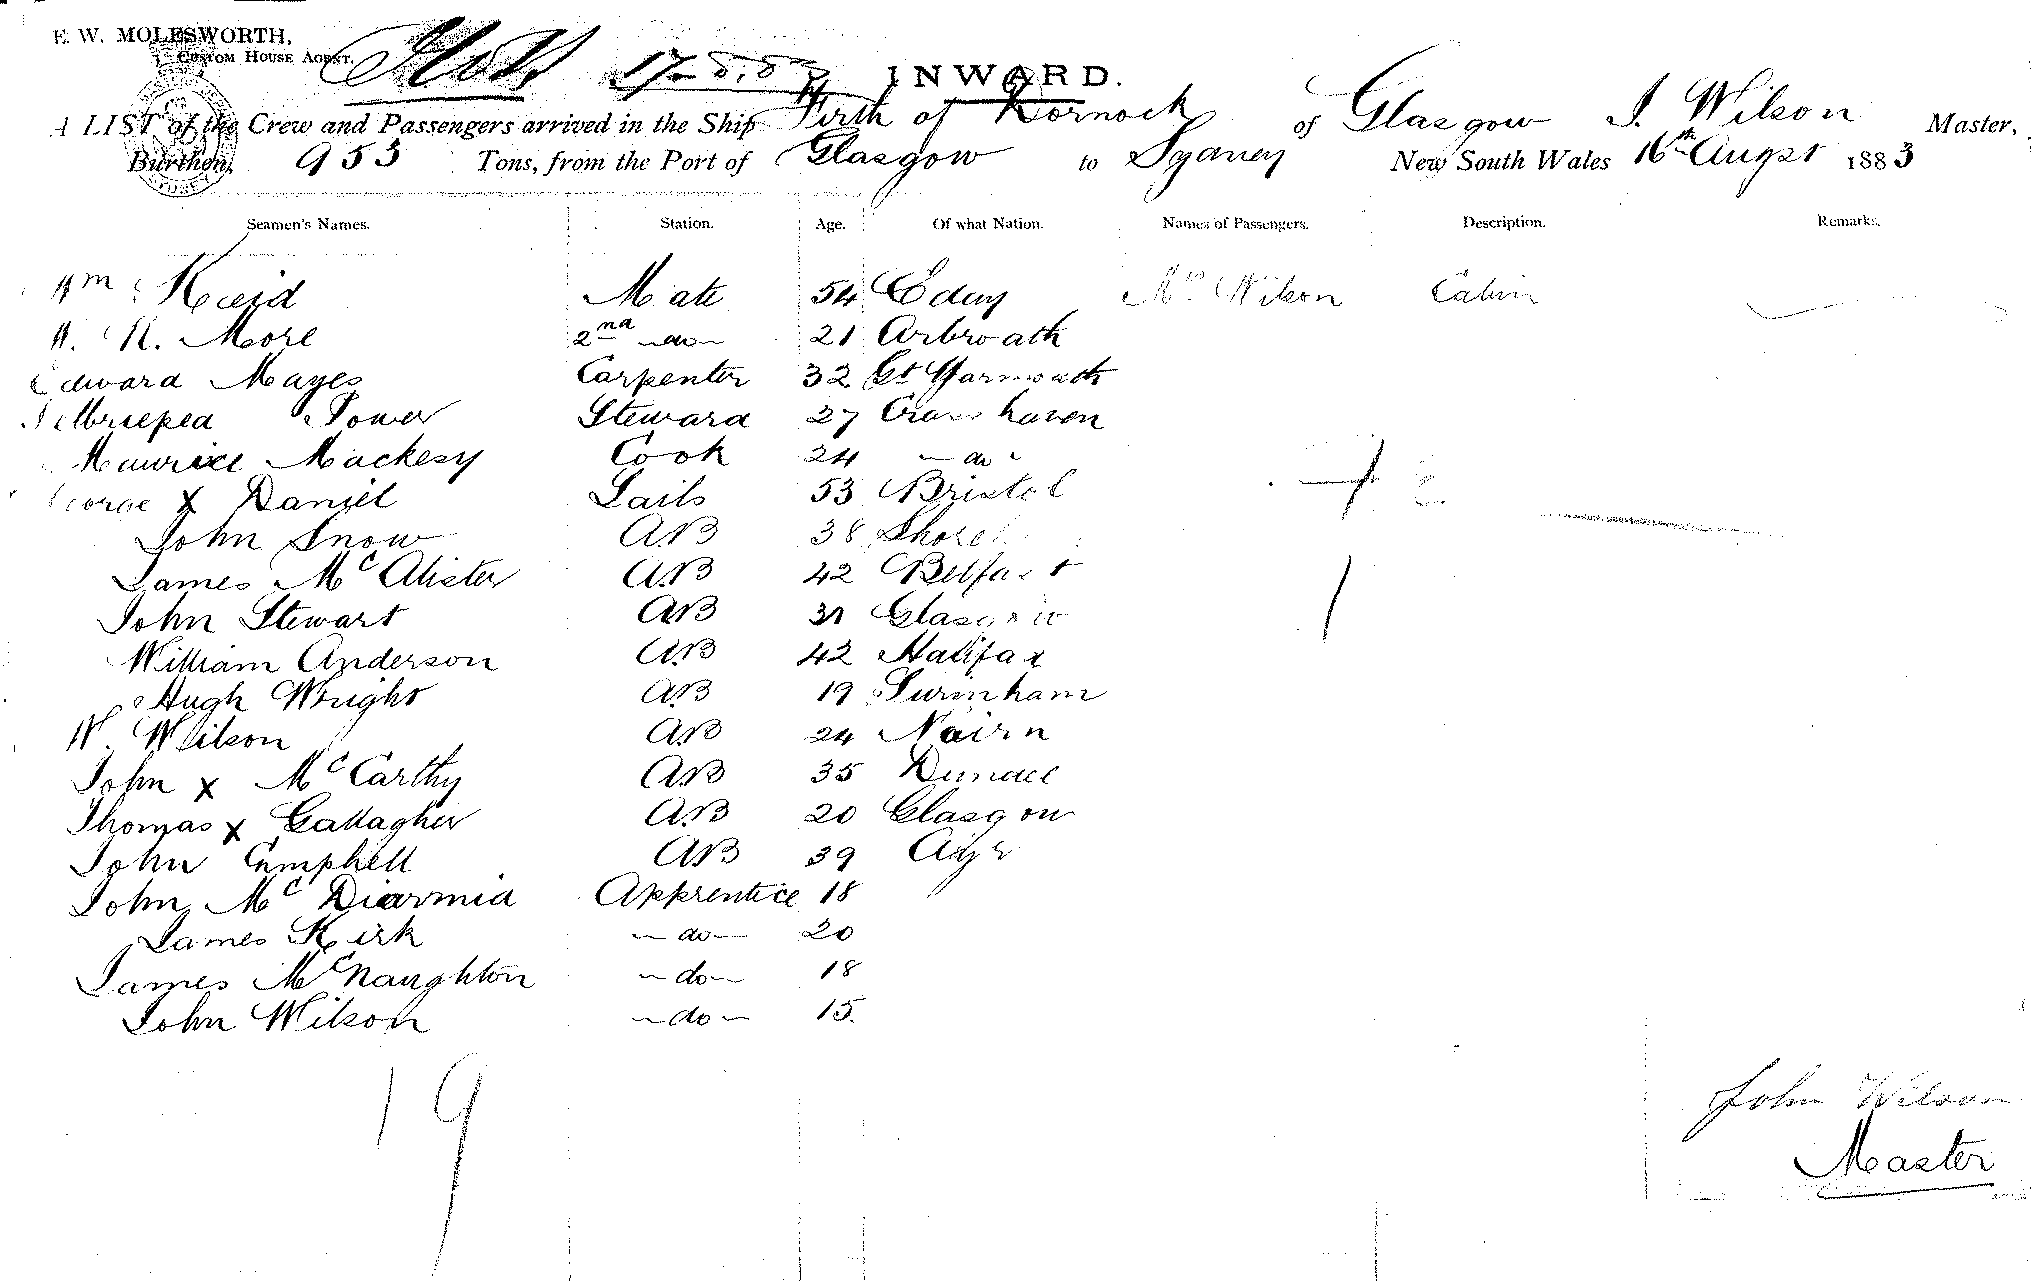 E. W. MOLESWORTH,
CUSTOM HOUSE AGENT.
INWARD.
A LIST of the Crew and Passengers arrived in the Ship Firth of Dornoch of Glasgow J. Wilson Master,
Burthen, 953 Tons, from the Port of Glasgow to Sydney New South Wales 16th Augst 1883
Seamen's Names. Station. Age. Of what Nation. Names of Passengers. Description. Remarks.
Wm Reid Mate 54 Eday Mrs Wilson Cabin
More 2nd do 21 Arbroath
Edward Mayes Carpenter 32 Gt Yarmouth
Power Steward 27 Cross haven
Maurice Mackesy Cook 24 do
George X Daniel Sails 53 Bristol
John Snow AB 38
James McAlister AB 42 Belfast
John Stewart AB 31 Glasgow
William Anderson AB 42 Halifax
Hugh Wright AB 19
W. Wilson AB 24 Nairn
John X McCarthy AB 35 Dundee
Thomas X Gallagher AB 20 Glasgow
John Campbell AB 39 Ayr
John McDiarmid Apprentice 18
James Kirk do 20
James McNaughton do 18
John Wilson do 15
19
John Wilson
Master